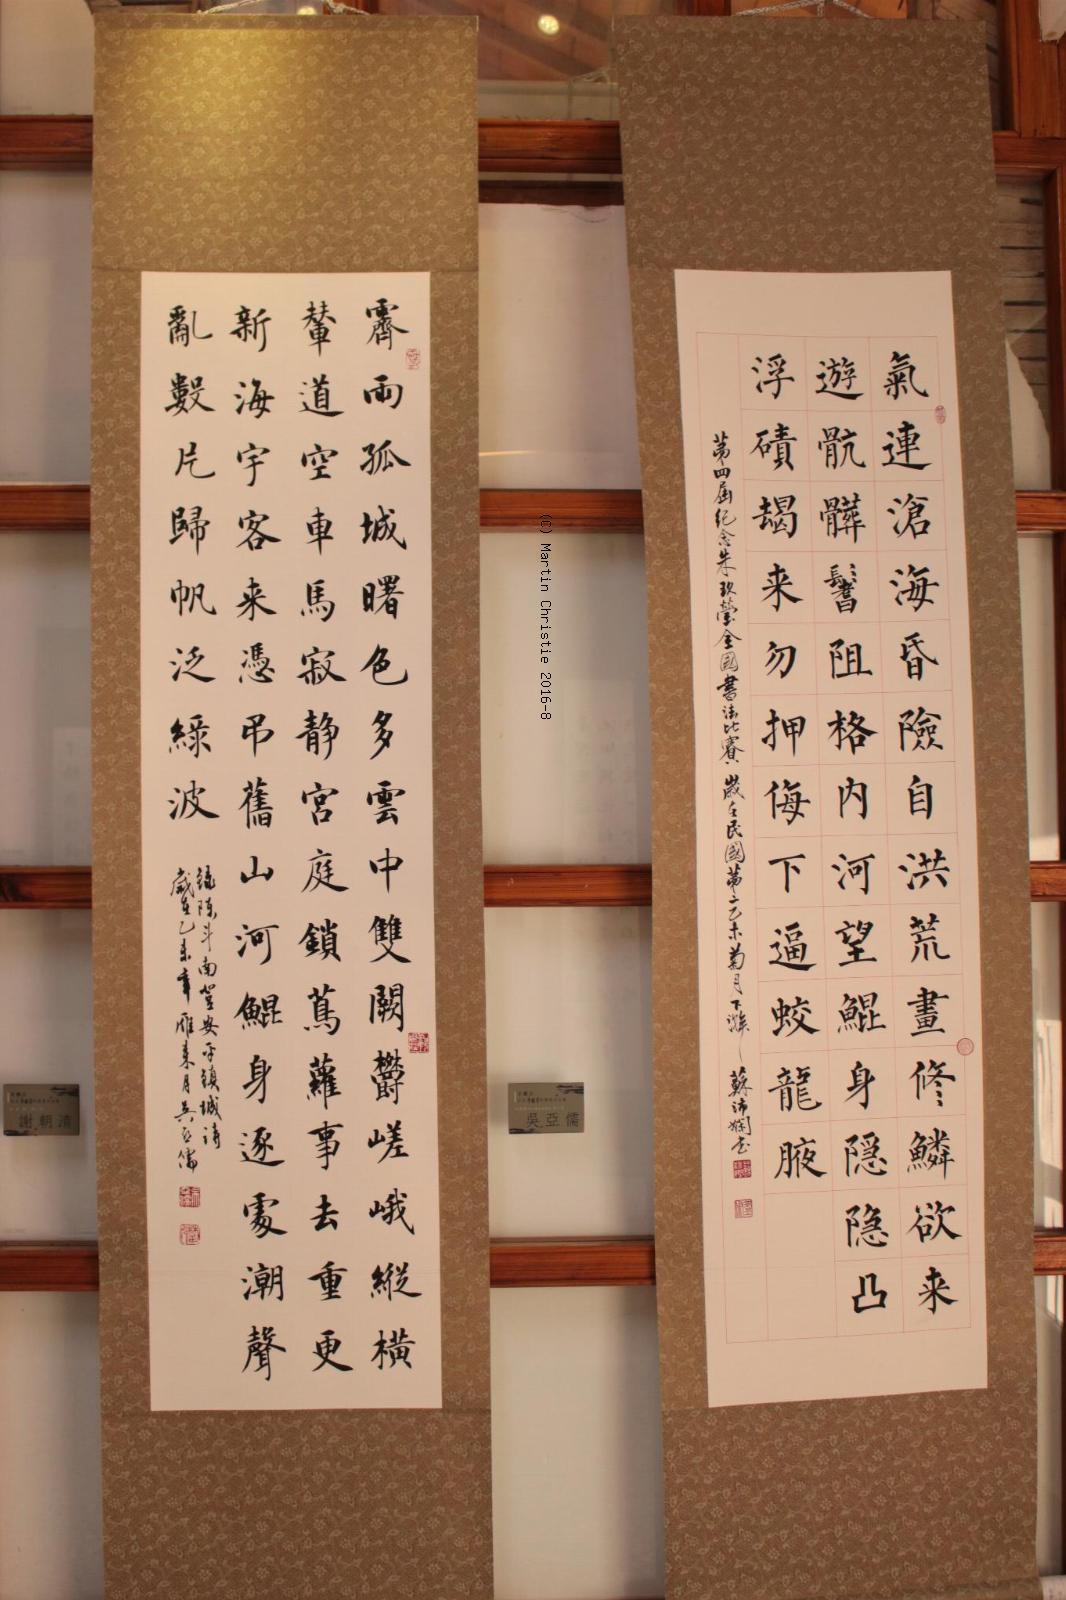 氣連滄海昏險自洪荒畫修鱗欲来
遊骯髒鬐阻格内河望鯤身隱隐凸
浮磧朅来勿押侮下逼蛟龍腋
第四屆纪念朱玖瑩全國書法比賽
歲在民國第二乙未菊月下澣
蘇沛嫻書
霽雨孤城曙色多雲中雙闕鬱嵯峨縱橫
輦道空車馬寂静宮庭鎖蔦蘿事去重更
新海宇客来憑吊舊山河鯤身逐處潮聲
亂數片歸帆泛綠波
錄陳斗南登安平鎮城詩
歲在乙未年雁来月吳亞儒
謝朝清
吳亞儒
(C) Martin Christie 2016-8